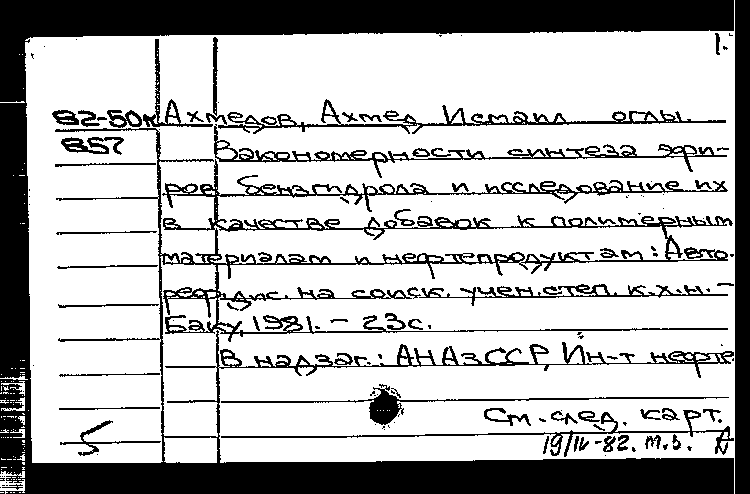 1.
82-50к Ахмедов, Ахмед Исмаил оглы.
857 Закономерности синтеза эфи-
ров бензгидрола и исследование их
в качестве добавок к полимерным
материалам и нефтепродуктам: Авто-
реф. дис. на соиск. учен. степ. к.х.н. -
Баку, 1981. - 23с.
В надзаг.: АН АзССР, Ин-т нефте
См. след. карт.
5 19/IV-82. м.з.